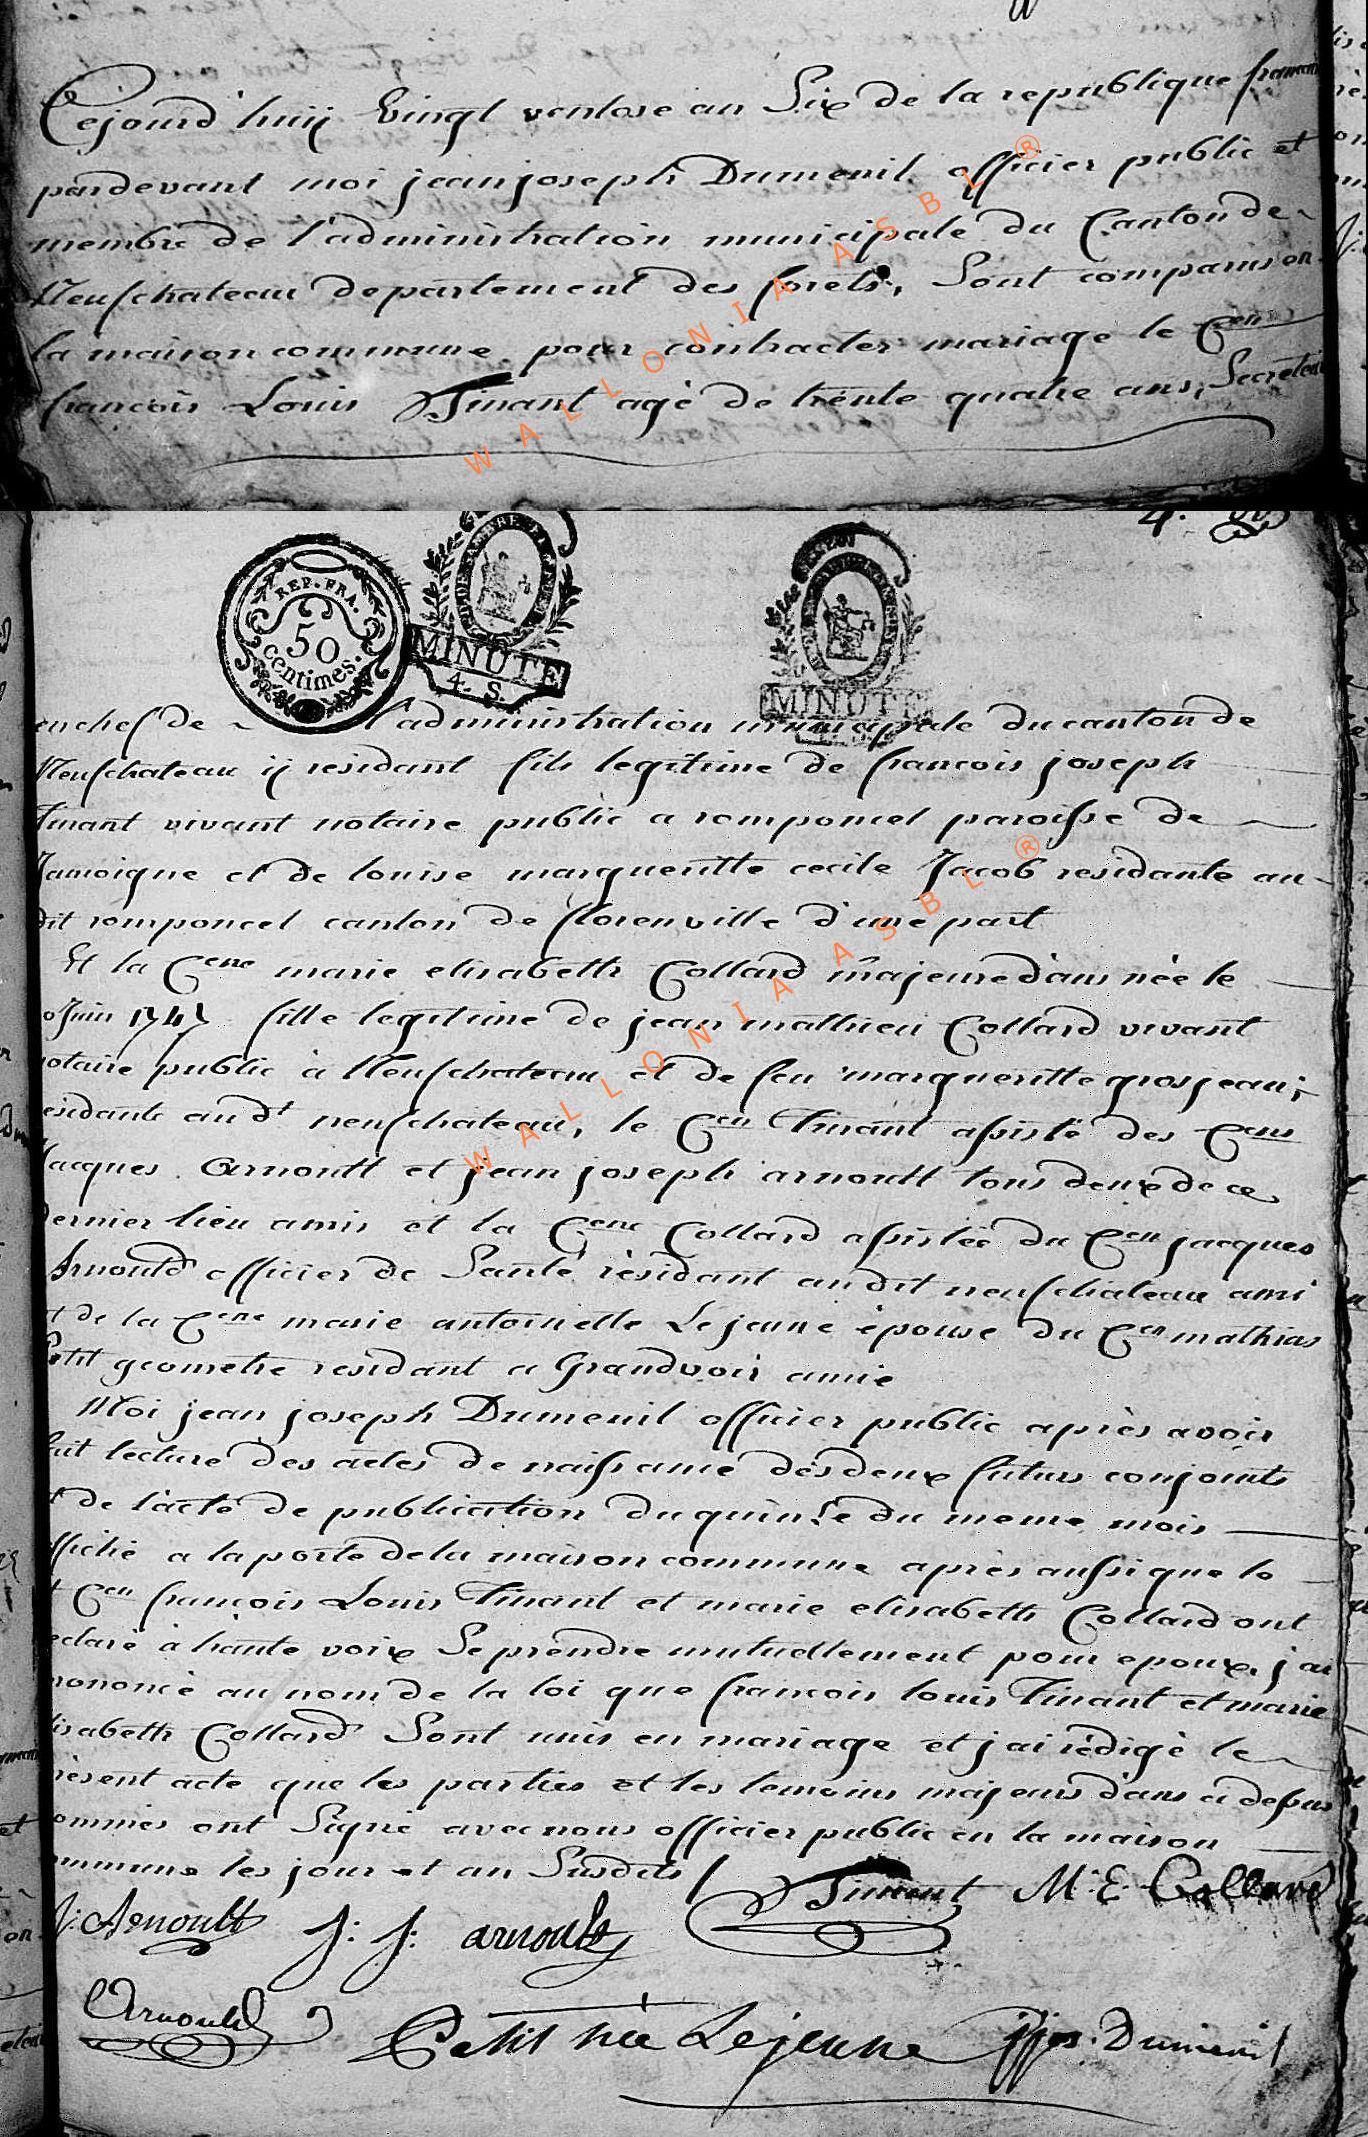 Cejourd'huij Vingt ventose an Six de la republique francaise
pardevant moi jean joseph Dumenil officier public et
membre de l'administration municipale du Canton de
Neufchateau departement des forets, Sont comparus en
la maison commune pour contracter mariage le Cen
francois Louis Tinant agé de trente quatre ans, Secretaire
WALLONIA ASBL ®
4. 
REP. FRA.
50
centimes.
MINUTE
4. S.
MINUTE
en chef de l'administration municipale du canton de
Neufchateau ij residant fils legitime de francois joseph
Tinant vivant notaire public a romponcel paroisse de
Jamoigne et de louise margueritte cecile Jacob residante au
dit romponcel canton de florenville d'une part
Et la Cenne marie elisabeth Collard majeure d'ans née le
Juin 1747 fille legitime de jean mathieu Collard vivant
notaire public à Neufchateau et de feu margueritte grosjean,
residante audt neufchateau, le Cen Tinant assisté des Cens
Jacques Arnoult et jean joseph arnoult tous deux de ce
dernier lieu amis et la Cenne Collard assistée du Cen jacques
Arnould officier de Santé résidant audit neufchateau ami
et de la Cenne marie antoinette Lejeune épouse du Cen mathias
Petit geometre residant a Grandvoir amie
Moi jean joseph Dumenil officier public après avoir
fait lecture des actes de naissance des deux futurs conjoints
et de l'acte de publication du quinze du meme mois
affiché a la porte de la maison commune après aussi que le
dt Cen francois Louis Tinant et marie elisabeth Collard ont
declaré à haute voix Se prendre mutuellement pour epoux, j'ai
prononcé au nom de la loi que francois louis Tinant et marie
elisabeth Collard Sont unis en mariage et j'ai rédigé le
présent acte que les parties et les temoins majeurs d'ans ci dessus
nommés ont Signé avec nous officier public en la maison
commune les jour et an Susdits
Tinant M. E Collard
J: Arnoult J: J: arnoult
Arnould Petit née Lejeune Dumenil
WALLONIA ASBL ®